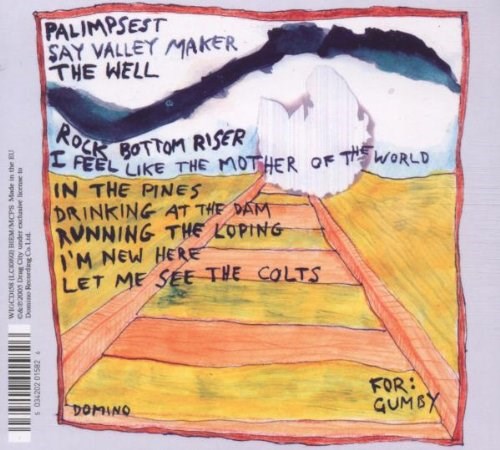 PALIMPSEST
SAY VALLEY MAKER
THE WELL
ROCK BOTTOM RISER
I FEEL LIKE THE MOTHER OF THE WORLD
IN THE PINES
DRINKING AT THE DAM
RUNNING THE LOPING
I'M NEW HERE
LET ME SEE THE COLTS
FOR:
GUMBY
DOMINO
Made in the EU
℗&©2005 Drag City under exclusive license to
Domino Recording Co Ltd.
5 034202 015826